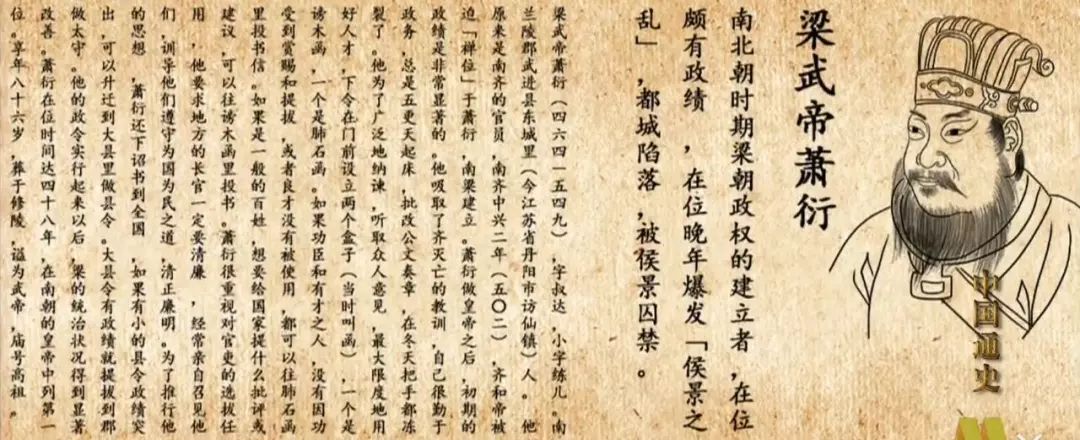 中国通史
梁武帝萧衍
南北朝时期梁朝政权的建立者,在位
颇有政绩,在位晚年爆发「侯景之
乱」,都城陷落,被侯景囚禁。
梁武帝萧衍(四六四一五四九),字叔达,小字练儿。南
兰陵郡武进县东城里(今江苏省丹阳市访仙镇)人。他
原来是南齐的官员,南齐中兴二年(五〇二),齐和帝被
迫「禅位」于萧衍,南梁建立。萧衍做皇帝之后,初期的
政绩是非常显著的。他吸取了齐灭亡的教训,自己很勤于
政务,总是五更天起床,批改公文奏章,在冬天把手都冻
裂了。他为了广泛地纳谏,听取众人意见,最大限度地用
好人才,下令在门前设立两个盒子(当时叫函),一个是
谤木函,一个是肺石函。如果功臣和有才之人,没有因功
受到赏赐和提拔,或者良才没有被使用,都可以往肺石函
里投书信。如果是一般的百姓,想要给国家提什么批评或
建议,可以往谤木函里投书。萧衍很重视对官吏的选拔任
用,他要求地方的长官一定要清廉,经常亲自召见他
们,训导他们遵守为国为民之道,清正廉明。为了推行他
的思想,萧衍还下诏书到全国,如果有小的县令政绩突
出,可以升迁到大县里做县令。大县令有政绩就提拔到郡
做太守。他的政令实行起来以后,梁的统治状况得到显著
改善。萧衍在位时间达四十八年,在南朝的皇帝中列第一
位。享年八十六岁,葬于修陵,谥为武帝,庙号高祖。